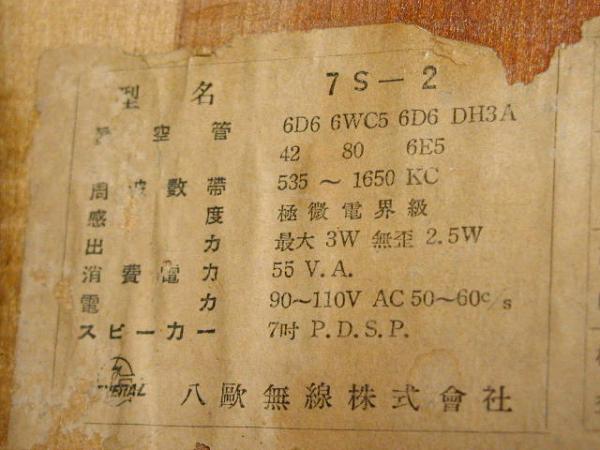 型名 7S-2
真空管 6D6 6WC5 6D6 DH3A
42 80 6E5
周波数帯 535～1650 KC
感度 極微電界級
出力 最大 3W 無歪 2.5W
消費電力 55 V.A.
電力 90～110V AC 50～60c/s
スピーカー 7吋 P.D.S.P.
八歐無線株式會社